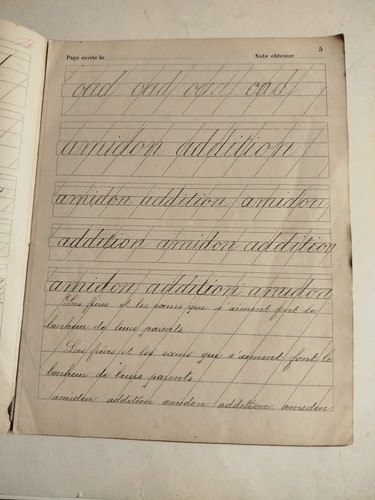 5
Page écrite le Note obtenue
oad oad oad oad
amidon addition
amidon addition amidon
addition amidon addition
amidon addition amidon
Les frères et les sœurs qui s'aiment font le
bonheur de leurs parents.
Les frères et les sœurs qui s'aiment font le
bonheur de leurs parents
amidon addition amidon addition amidon